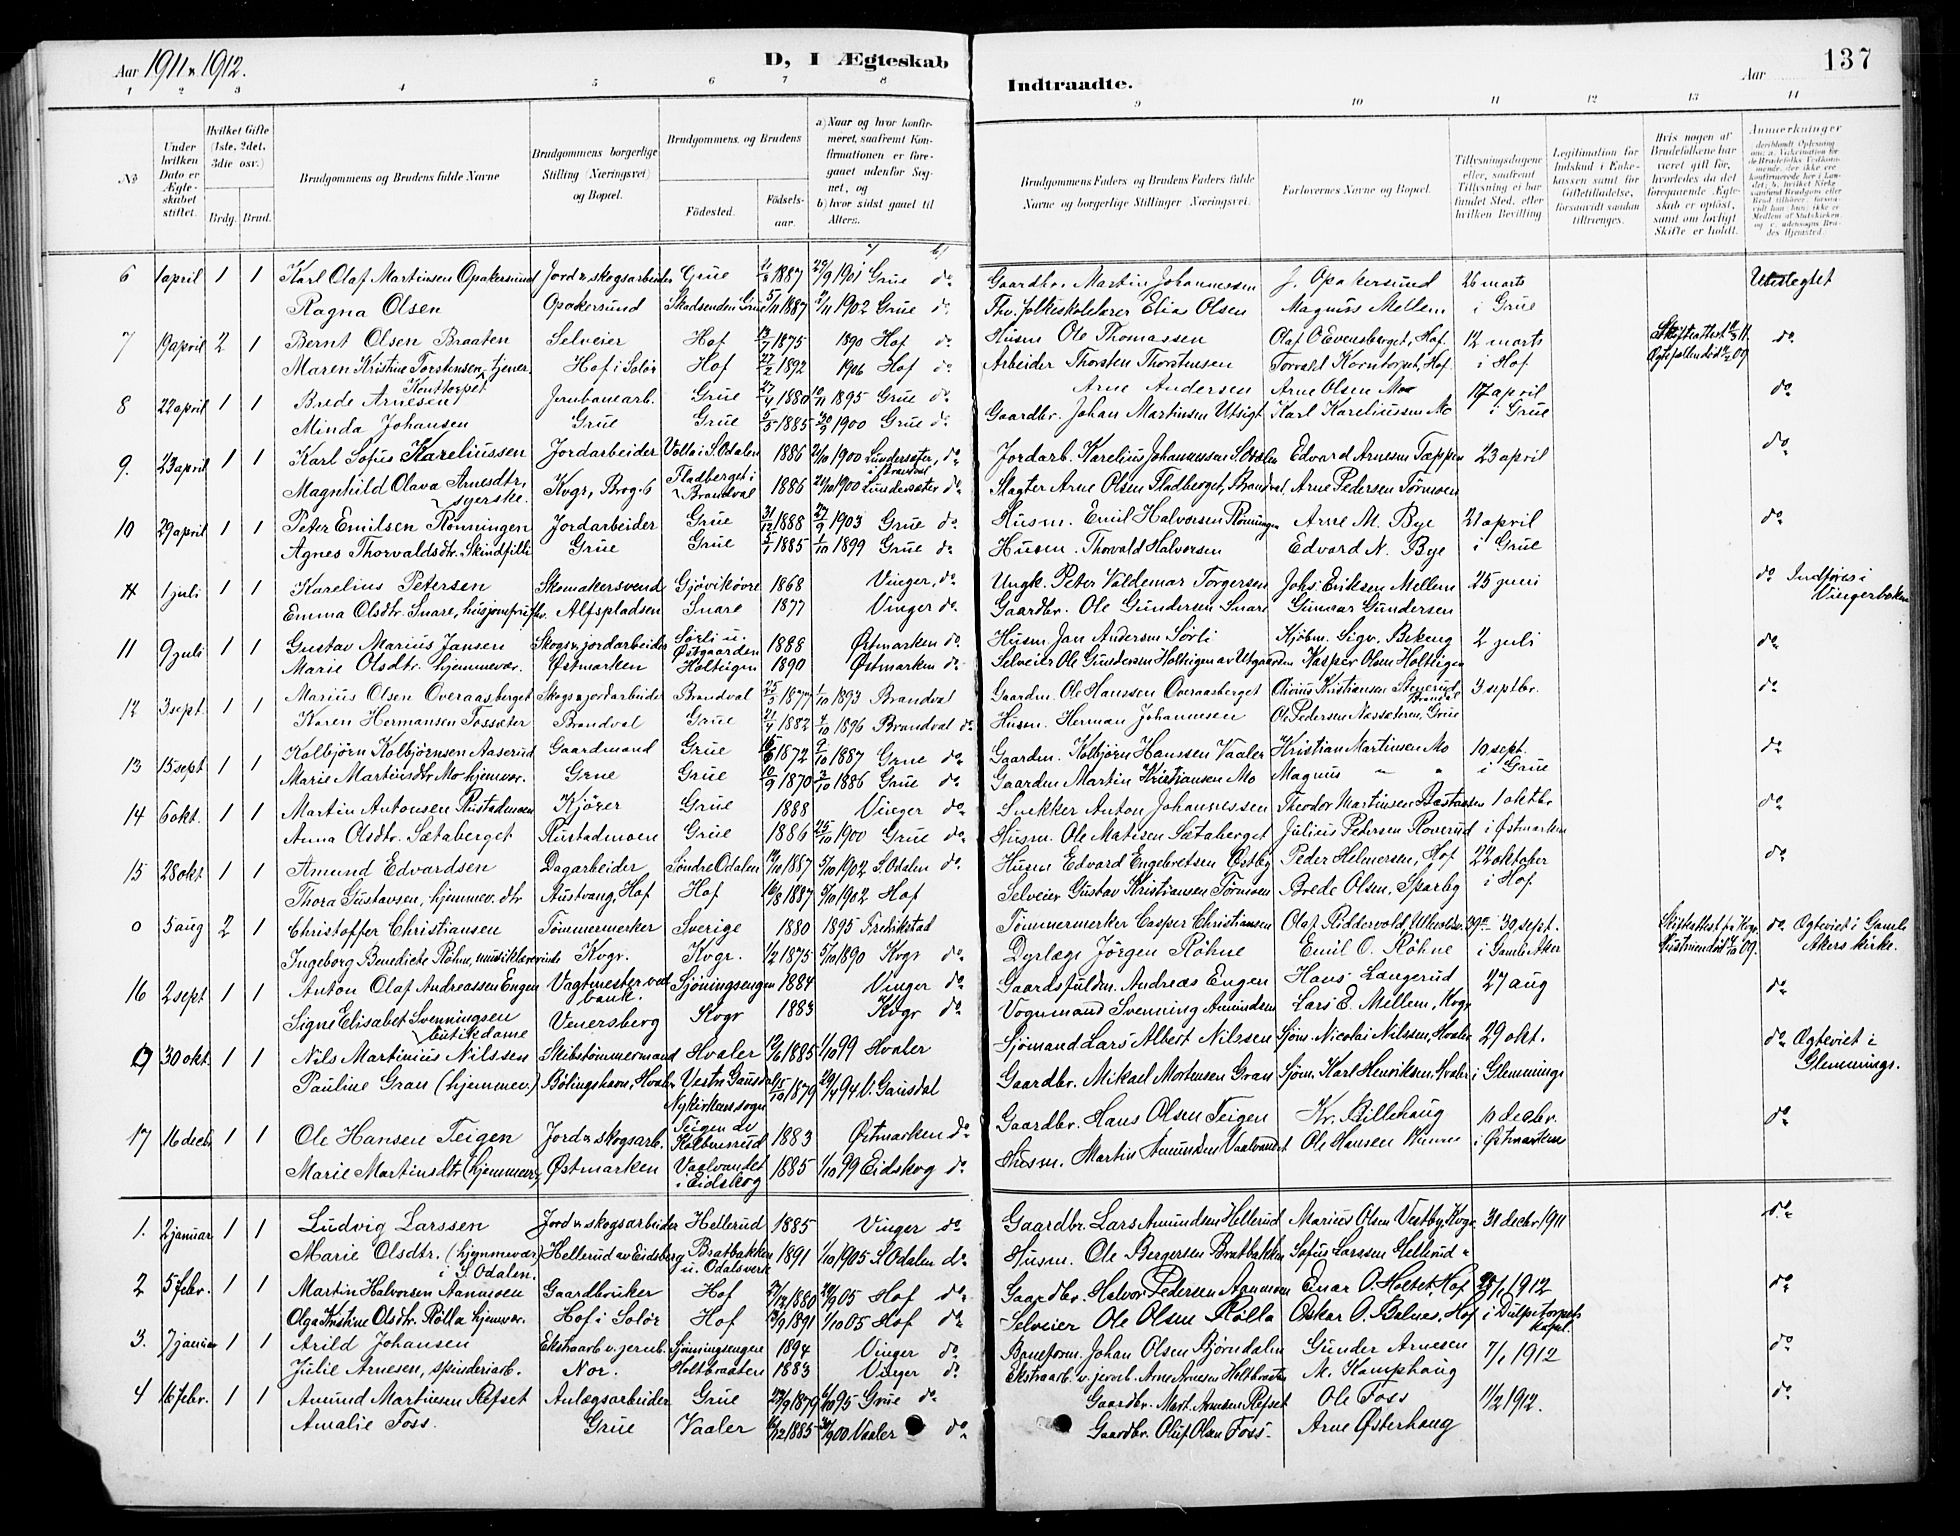 Aar 1911 & 1912. D, I Ægteskab Indtraadte. Aar 137
1 2 3 4 5 6 7 8 9 10 11 12 13 14
No
Under hvilken Dato er Ægteskabet stiftet.
Hvilket Gifte (1ste, 2det, 3die osv.)
Brdg. Brud.
Brudgommens og Brudens fulde Navne
Brudgommens borgerlige Stilling (Næringsvei) og Bopæl.
Brudgommens og Brudens
Fødested. Fødselsaar.
a) Naar og hvor konfirmeret, saafremt Konfirmationen er foregaaet udenfor Sognet, og
b) hvor sidst gaaet til Alters.
Brudgommens Faders og Brudens Faders fulde Navne og borgerlige Stillinger Næringsvei.
Forlovernes Navne og Bopæl.
Tillysningsdagene eller, saafremt Tillysning ei har fundet Sted, efter hvilken Bevilling
Legitimation for Indskud i Enkekassen samt for Giftetilladelse, forsaavidt saadan tiltrænges.
Hvis nogen af Brudefolkene har været gift før, hvorledes da det foregaaende Ægteskab er opløst, samt om lovligt Skifte er holdt.
Anmerkninger
a) b)
6 1 april 1 1 Karl Olaf Martinsen Opakersund Jord & skogsarbeider Grue 1887 1901 Grue do Gaardbr. Martin Johannessen J. Opakersund 26 marts Ubeslegtet
Ragna Olsen Opakersund Skadsenden Grue 5/11 1887 1902 Grue do Fhv. folkeskolelærer Elias Olsen Magnus Mellem i Grue
7 19 april 2 1 Bernt Olsen Braaten Selveier Hof 1875 1890 Hof do Husm Ole Thomassen Olaf O Evensberget, Hof. 12 marts Skifteattest do
Maren Kristine Torstensen, tjener Hof i Solør Hof 27/2 1892 1906 Hof do Arbeider Thorsten Thorstensen Torvald Korntorpet, Hof i Hof
Konttorpet
8 22 april 1 1 Brede Arnesen Jernbanearb. Grue 27/4 1880 1895 Grue do Arne Andersen Arne Olsen Moe 17 april do
Minda Johansen Grue Grue 5/5 1885 30/9 1900 Grue do Gaardbr. Johan Martinsen Utsigt Karl Kareliussen Mo i Grue
9. 23 april 1 1 Karl Sofus Kareliussen Jordarbeider Volla i S. Odalen 1886 1900 Lundersæter, do Jordarb. Karelius Johannessen S. Odalen Edvard Arnesen Tæppen 23 april do
i Brandval
Magnhild Olava Arnesdtr, syerske Kvgr, Brog. 6 Fladberget i Brandval 1886 1900 Lundersæter do Slagter Arne Olsen Fladberget, Brandval, Arne Pedersen Tørmoen
10 29 april 1 1 Peter Emilsen Rønningen Jordarbeider Grue 31/12 1888 27/9 1903 Grue do Husm. Emil Halvorsen Rønningen Arne M. Bye 21 april do
Agnes Thorvaldsdtr. Skindfilli Grue Grue 5/1 1885 1/10 1899 Grue do Husm. Thorvald Halvorsen Edvard N. Bye i Grue
1 juli 1 1 Karelius Petersen Skomakersvend Gjøvikøvre 1868 Vinger, do Ungk. Peter Valdemar Torgersen Johs. Eriksen Mellem 25 juni do Indføres i Vingerboken
Emma Olsdtr. Snare, Alfspladsen Snare 1877 Vinger do Gaardbr. Ole Gundersen Snare Gunnar Gundersen
11 9 juli 1 1 Gustav Marius Jansen Skogs & jordarbeider Sørli u. Østgaarden 1888 Østmarken do Husm Jan Andersen Sørli Kjøbm. Sigv. Bekeng 2 juli do
Marie Olsdtr. hjemmevær. Østmarken Holteigen 1890 Østmarken do Selveier Ole Gundersen Holteigen av Utgaarden Kasper Olsen Holteigen
12 3 sept. 1 1 Marius Olsen Overaasberget Skogs & jordarbeider Brandval 25/3 1877 1/10 1893 Brandval Gaardm. Ole Hanssen Overaasberget Kristiansen Stenerud, Brandval 3 septbr. do
Karen Hermansen Fossæter Brandval Grue 21/4 1882 4/10 1896 Brandval do Husm. Herman Johannesen Ole Pedersen Næssæteren, Grue
13 15 sept 1 1 Kolbjørn Kolbjørnsen Aaserud Gaardmand Grue 1872 9/10 1887 Grue do Gaardm. Kolbjørn Hanssen Vaaler Kristian Martinsen Mo 10 sept. do
Marie Martinsdtr Mo hjemmevær. Grue Grue 10/9 1870 1886 Grue do Gaardm Martin Kristiansen Mo Magnus " " i Grue
14 6 okt. 1 1 Martin Antonsen Rustadmoen Kjører Grue 1888 Vinger do Snekker Anton Johannessen Theodor Martinsen Bastaasen 1 oktbr do
Anna Olsdtr. Sætaberget Rustadmoen Grue 1886 25/10 1900 Grue do Husm. Ole Matisen Sætaberget Julius Pedersen Roverud i Østmarken
15 28 okt 1 1 Amund Edvardsen Dagarbeider Søndre Odalen 1887 5/10 1902 S. Odalen do Husm Edvard Engebretsen Østby Peder Helmersen, Hof 22 oktober do
Thora Gustavsen, hjemmev. dtr Austvang, Hof Hof 16/8 1887 5/10 1902 Hof Selveier Gustav Kristiansen Tørmoen Brede Olsen, Sparby i Hof
0 5 aug 2 1 Christoffer Christiansen Tømmermerker Sverige 1880 1895 Fredrikstad Tømmermerker Casper Christiansen Olaf Riddervold 30 sept. Skifteattest fra Kvgr. do Ægteviet i Gamle Akers kirke.
Ingeborg Benedicte Røhne, musiklærerinde Kvgr. Kvgr. 1/2 1875 5/10 1890 Kvgr do Dyrlæge Jørgen Røhne Emil O. Røhne i Gamle Aker
16 2 sept 1 1 Anton Olaf Andreassen Engen Vagtmester ved bane. Sjøningsengen 1884 Vinger do Gaardsfuldm. Andreas Engen Hans Langerud 27 aug do
Signe Elisabet Svenningsen butikdame Venersberg Kvgr 1883 Kvgr do Vognmand Svenning Amundsen Lars E. Mellem, Kvgr
0 30 okt 1 1 Nils Martinius Nilssen Skibstømmermand Hvaler 1885 1/10 99 Hvaler Sjømand Lars Albert Nilssen Sjøm. Nicolai Nilssen, Hvaler 29 okt. do Ægteviet i Glemminge.
Pauline Gran (hjemmev.) Bølingshavn, Hvaler Vestre Gausdal Nykirkens sogn 15/10 1879 94 V. Gausdal Gaardbr. Mikael Mortensen Gran Sjøm. Karl Henriksen, Hvaler i Glemminge
17 16 decbr 1 1 Ole Hansen Teigen Jord & skogsarb. Teigen av Kolbenrud 1883 Østmarken do Gaardbr. Hans Olsen Teigen Kr. Billehaug 10 decbr. do
Marie Martinsdtr (hjemmev.) Østmarken Vaalvandet i Eidskog 1885 1/10 99 Eidskog do Husm. Martin Amundsen Vaalvandet Ole Hansen i Østmarken
1. 2 januar 1 1 Ludvig Larssen Jord & skogsarbeider Hellerud 1885 Vinger do Gaardbr. Lars Amundsen Hellerud Marius Olsen Vestby, Kvgr. 31 decbr 1911 do
Marie Olsdtr. (hjemmevær.) i S. Odalen. Hellerud av Eidsberg Bratbakken u. Odalsverk 1891 1/10 1905 S. Odalen do Husm. Ole Bergersen Bratbakken Sofus Larssen Hellerud "
2 5 febr. 1 1 Martin Halvorsen Aamoen Gaardbruker Hof 1880 05 Hof do Gaardbr. Halvor Pedersen Aamoen Einar O. Holtet, Hof 1912 do
Olga Kristine Olsdtr. Rølla hjemvær. Hof i Solør Hof 1891 1/10 05 Hof do Selveier Ole Olsen Rølla Oskar O. Balnes, Hof i Dulpetorpets kapel.
3. 7 januar 1 1 Arild Johansen Ekstraarb v. jernb. Sjønningsengene 1894 Vinger do Baneform. Johan Olsen Bjørndalen Gunder Arnesen 7/1 1912 do
Julie Arnesen, spinderiarb. Nor. Holtbraaten 1883 Vinger do Ekstraarb. v. jernb. Arne Arnesen Holtbraaten M. Kamphaug
4 16 febr. 1 1 Amund Martinsen Refset Anlægsarbeider Grue 1879 95 Grue do Gaardbr. Mart. Arnesen Refset Ole Foss 11/2 1912. do
Amalie Foss. Grue Vaaler 1885 1900 Vaaler do Gaardbr. Oluf Olsen Foss. Arne Østerhaug